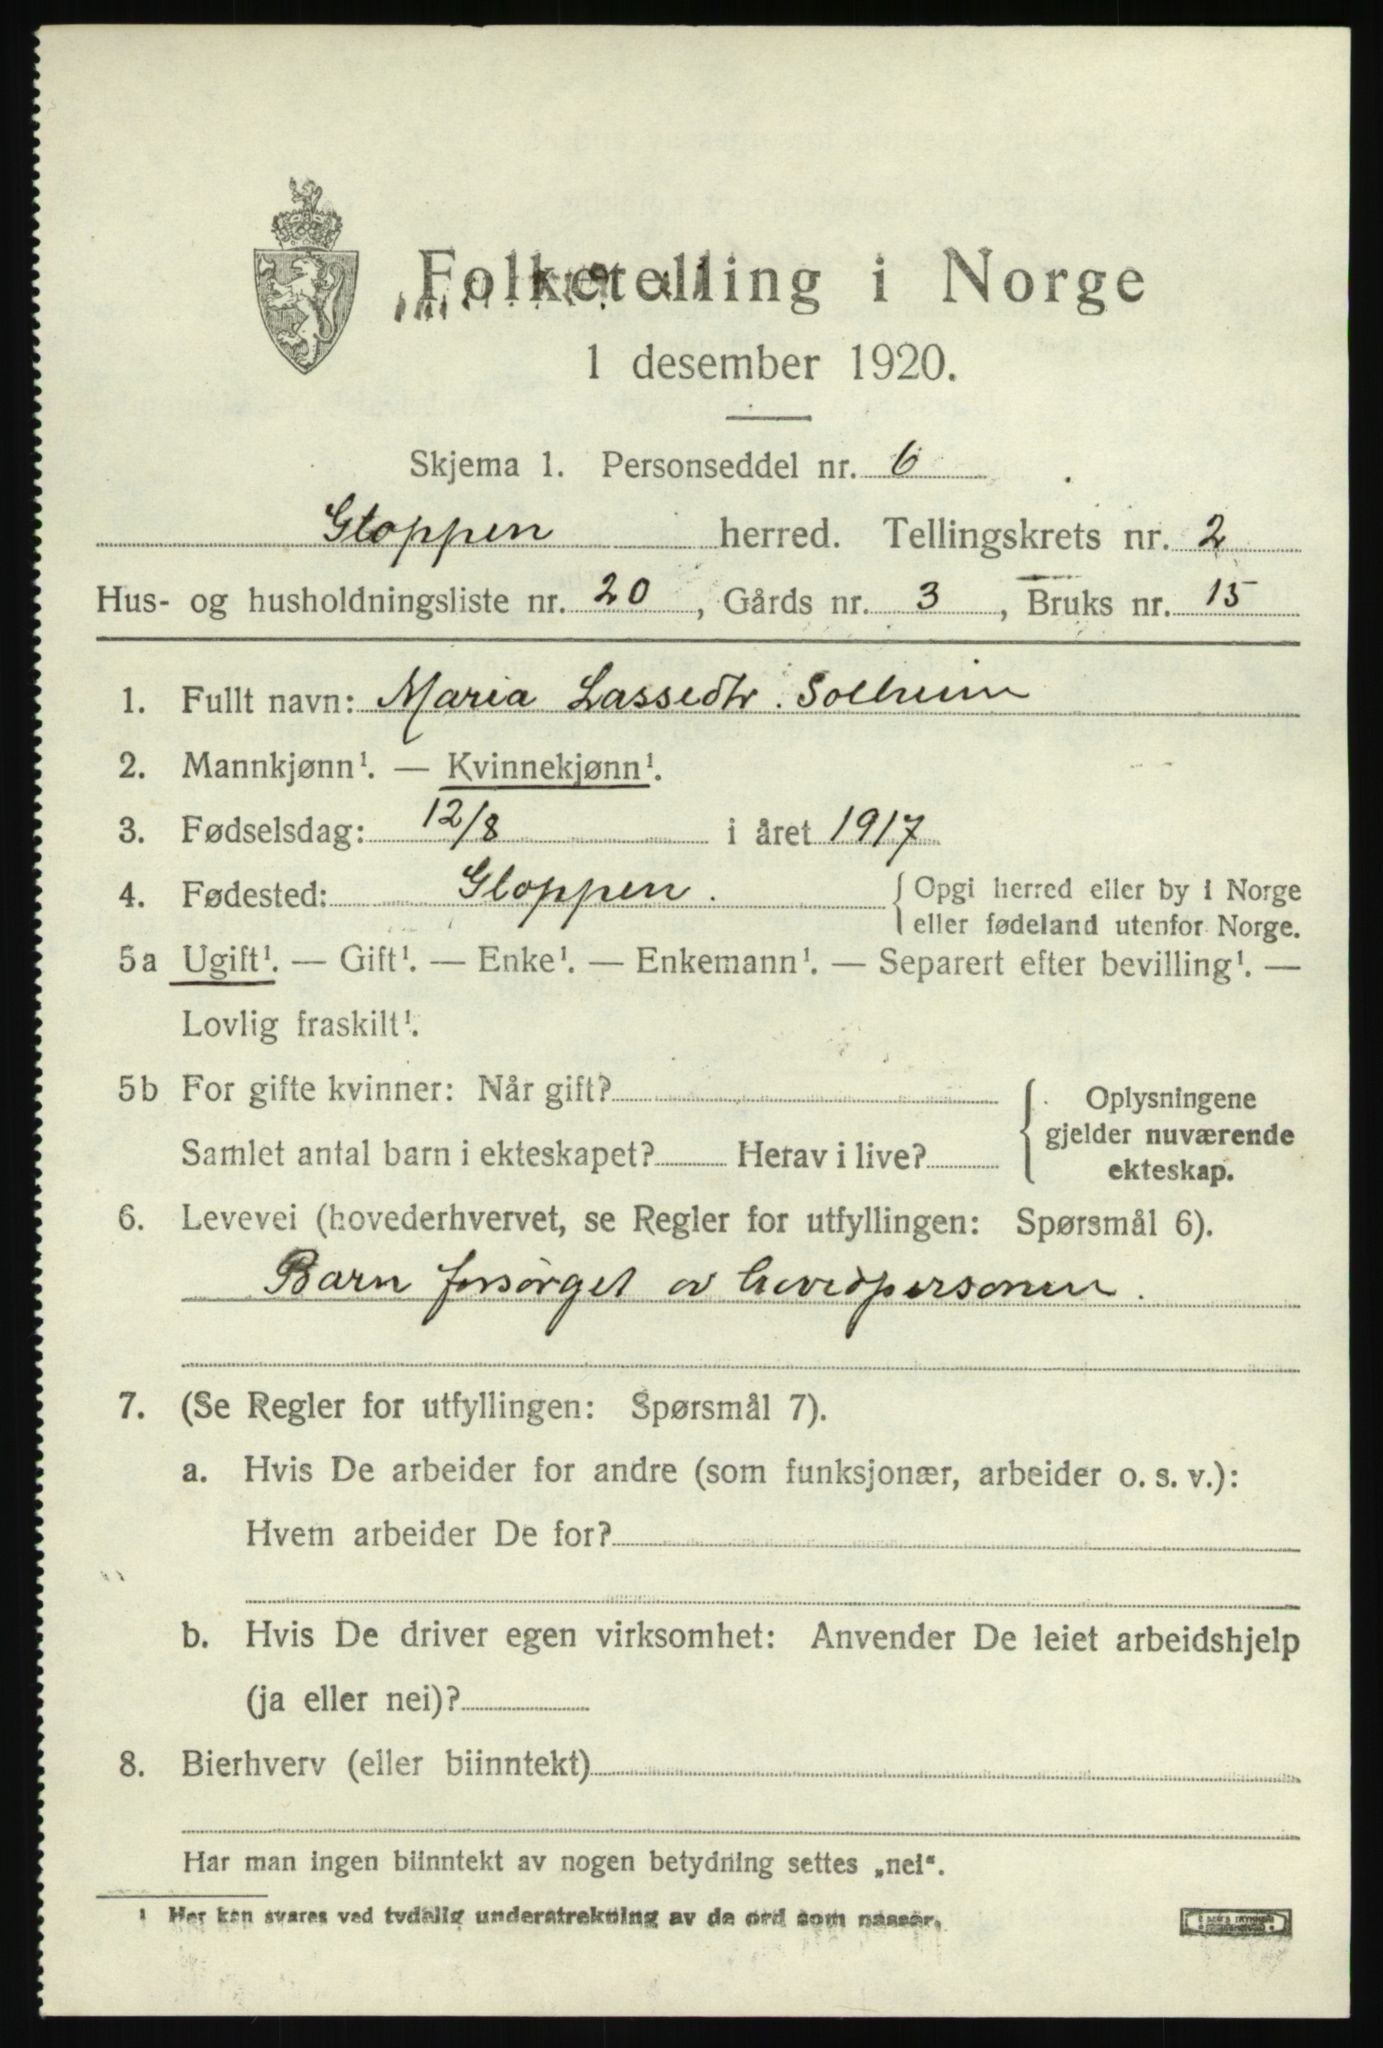 Folketelling i Norge
1 desember 1920.
Skjema 1. Personseddel nr. 6
Gloppen herred. Tellingskrets nr. 2
Hus- og husholdningsliste nr. 20, Gårds nr. 3, Bruks nr. 15
1. Fullt navn: Maria Lassedtr. Solheim
2. Mannkjønn¹. — Kvinnekjønn¹.
3. Fødselsdag: 12/8 i året 1917
4. Fødested: Gloppen. { Opgi herred eller by i Norge
eller fødeland utenfor Norge.
5a Ugift¹. — Gift¹. — Enke¹. — Enkemann¹. — Separert efter bevilling¹. —
Lovlig fraskilt¹.
5b For gifte kvinner: Når gift? { Oplysningene
gjelder nuværende
Samlet antal barn i ekteskapet? Herav i live?
ekteskap.
6. Levevei (hovederhvervet, se Regler for utfyllingen: Spørsmål 6).
Barn forsørget av hovedpersonen.
7. (Se Regler for utfyllingen: Spørsmål 7).
a. Hvis De arbeider for andre (som funksjonær, arbeider o. s. v.):
Hvem arbeider De for?
b. Hvis De driver egen virksomhet: Anvender De leiet arbeidshjelp
(ja eller nei)?
8. Bierhverv (eller biinntekt)
Har man ingen biinntekt av nogen betydning settes „nei“.
¹ Her kan svares ved tydelig understrekning av de ord som passer.